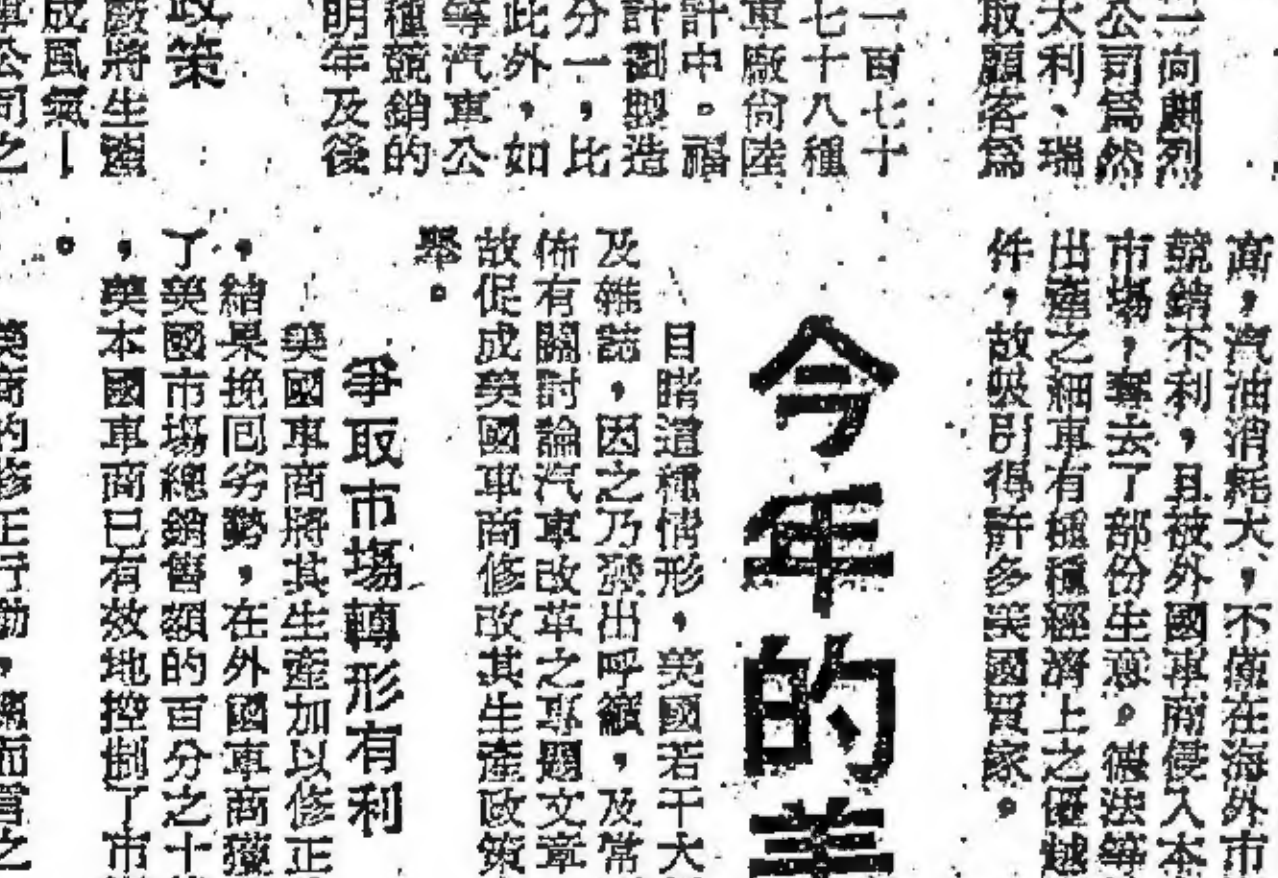 二向興烈
公司爲然
太利、瑞
取顧客爲
一百七十
七十八種
車廠尙陸
計中。福
計劃製造
分一,比
此外,如
等汽車公
種競銷的
明年及後
政策
廠將生產
成風氣—
車公司之
高,汽油消耗大,不僅在海外市
競銷不利,且被外國車商侵入本
市場,奪去了部份生意。德法等
出產之細車有種種經濟上之優越
件,故吸引得許多美國買家。
今年的美
目睹這種情形,美國若干大
及雜誌,因之乃發出呼籲,及常
佈有關討論汽車改革之專題文章
故促成美國車商修改其生產政策
舉。
爭取市場轉形有利
美國車商將其生產加以修正
,結果挽回劣勢,在外國車商獲
了美國市場總銷售額的百分之十
,美本國車商已有效地控制了市
。
美商的修正行動,